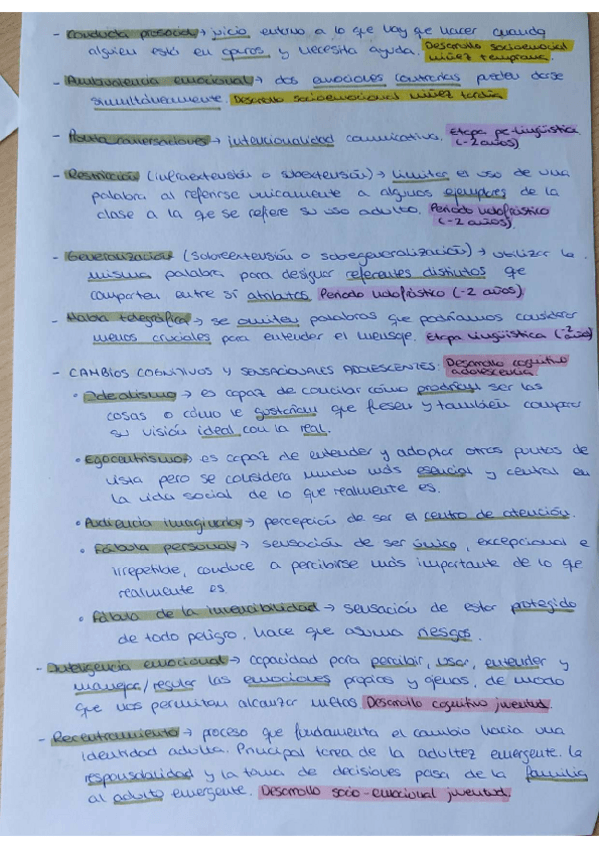 - Conducta prosocial → juicio entorno a lo que hay que hacer cuando
alguien está en apuros y necesita ayuda. Desarrollo socioemocional
niñez temprana.
- Ambivalencia emocional → dos emociones contrarias pueden darse
simultáneamente. Desarrollo socioemocional niñez tardía
- → intencionalidad comunicativa. Etapa pre-lingüística
(-2 años)
- Restricción (infraextensión o subextensión) → limitar el uso de una
palabra al referirse unicamente a algunos ejemplares de la
clase a la que se refiere su uso adulto. Periodo holofrástico
(-2 años).
- Generalización (sobreextensión o sobregeneralización) → utilizar la
misma palabra para designar referentes distintos que
comparten entre sí atributos. Periodo holofrástico (-2 años)
- Habla telegráfica → se omiten palabras que podríamos considerar
menos cruciales para entender el mensaje. Etapa lingüística (-2 años)
- CAMBIOS COGNITIVOS Y SENSACIONALES ADOLESCENTES: Desarrollo cognitivo
adolescencia
• Idealismo → es capaz de concilar cómo podrían ser las
cosas o cómo le gustarían que fuesen y también comparar
su visión ideal con la real.
• Egocentrismo → es capaz de entender y adoptar otros puntos de
vista pero se considera mucho más esencial y central en
la vida social de lo que realmente es.
• Audiencia imaginaria → percepción de ser el centro de atención.
• Fábula personal → sensación de ser único, excepcional e
irrepetible, conduce a percibirse más importante de lo que
realmente es
• Fábula de la invencibilidad → sensación de estar protegido
de todo peligro. hace que asuma riesgos.
- Inteligencia emocional → capacidad para percibir, usar, entender y
manejar/regular las emociones propias y ajenas, de modo
que nos permitan alcanzar metas Desarrollo cognitivo juventud.
- Recentramiento → proceso que fundamenta el cambio hacia una
identidad adulta. Principal tarea de la adultez emergente. La
responsabilidad y la toma de decisiones pasa de la familia
al adulto emergente. Desarrollo socio-emocional juventud.